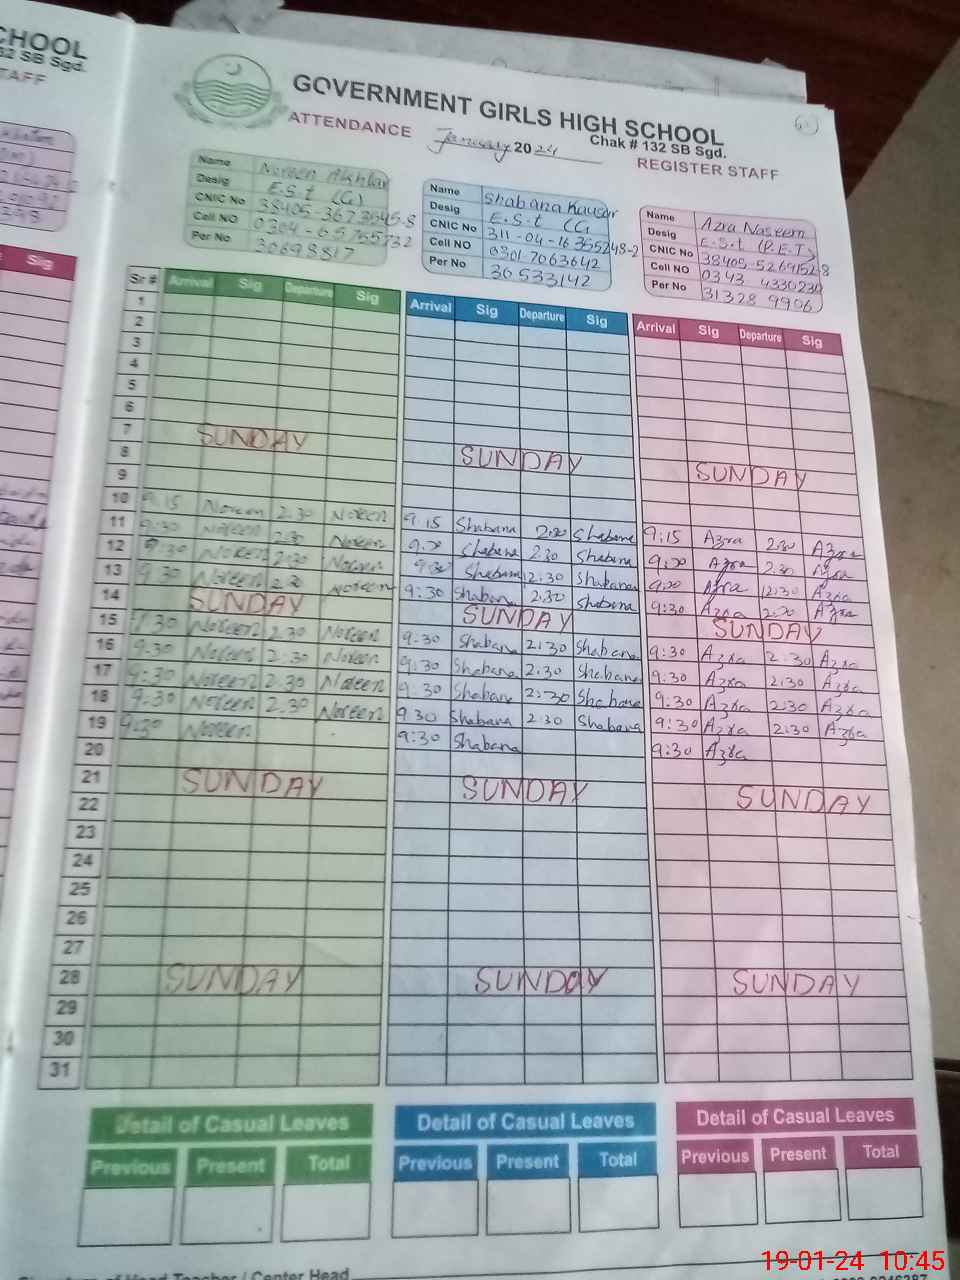 CHOOL
32 SB Sgd.
TAFF
GOVERNMENT GIRLS HIGH SCHOOL
Chak # 132 SB Sgd.
ATTENDANCE January 2024 REGISTER STAFF
Name Noreen Akhtar
Desig E.S.t (G)
CNIC No 38405-3673545-8
Cell NO 0304-6576
Per No 30698817
Name Shabana Kausar
Desig E.S.t (G
CNIC No 311-04-16355248-2
Cell NO 0301-7063642
Per No 30533142
Name Azra Naseem
Desig E.S.t (P.E.T)
CNIC No 38405-5269152-8
Cell NO 0343 4330230
Per No 31328 9906
Sig
Sr # Arrival Sig Departure Sig Arrival Sig Departure Sig Arrival Sig Departure Sig
1
2
3
4
5
6
7 SUNDAY SUNDAY SUNDAY
8
9
10 9.15 Noreen 2.30 Noreen 9.15 Shabana 2.30 Shabana 9:15 Azra 2.30 Azra
11 9:30 Noreen 2.30 Noreen Shabana 2.30 Shabana Azra 2.30 Azra
12 9:30 Noreen 2.30 Noreen Shabana 2.30 Shabana Azra 2.30 Azra
13 9.30 Noreen Noreen 9:30 Shabana 2.30 Shabana 9:30 Azra Azra
14 SUNDAY SUNDAY SUNDAY
15 Noreen 2.30 Noreen 9:30 Shabana 2:30 Shabana 9:30 Azra 2:30 Azra
16 9.30 Noreen 2:30 Noreen 9:30 Shabana 2.30 Shabana 9:30 Azra 2:30 Azra
17 9:30 Noreen 2.30 Noreen 9:30 Shabana 2:30 Shabana 9:30 Azra 2:30 Azra
18 9.30 Noreen 2.30 Noreen 9.30 Shabana 2:30 Shabana 9:30 Azra 2:30 Azra
19 9:30 Noreen 9:30 Shabana 9:30 Azra
20
21 SUNDAY SUNDAY SUNDAY
22
23
24
25
26
27
28 SUNDAY SUNDAY SUNDAY
29
30
31
Detail of Casual Leaves Detail of Casual Leaves Detail of Casual Leaves
Previous Present Total Previous Present Total Previous Present Total
Head Teacher / Center Head
19-01-24 10:45